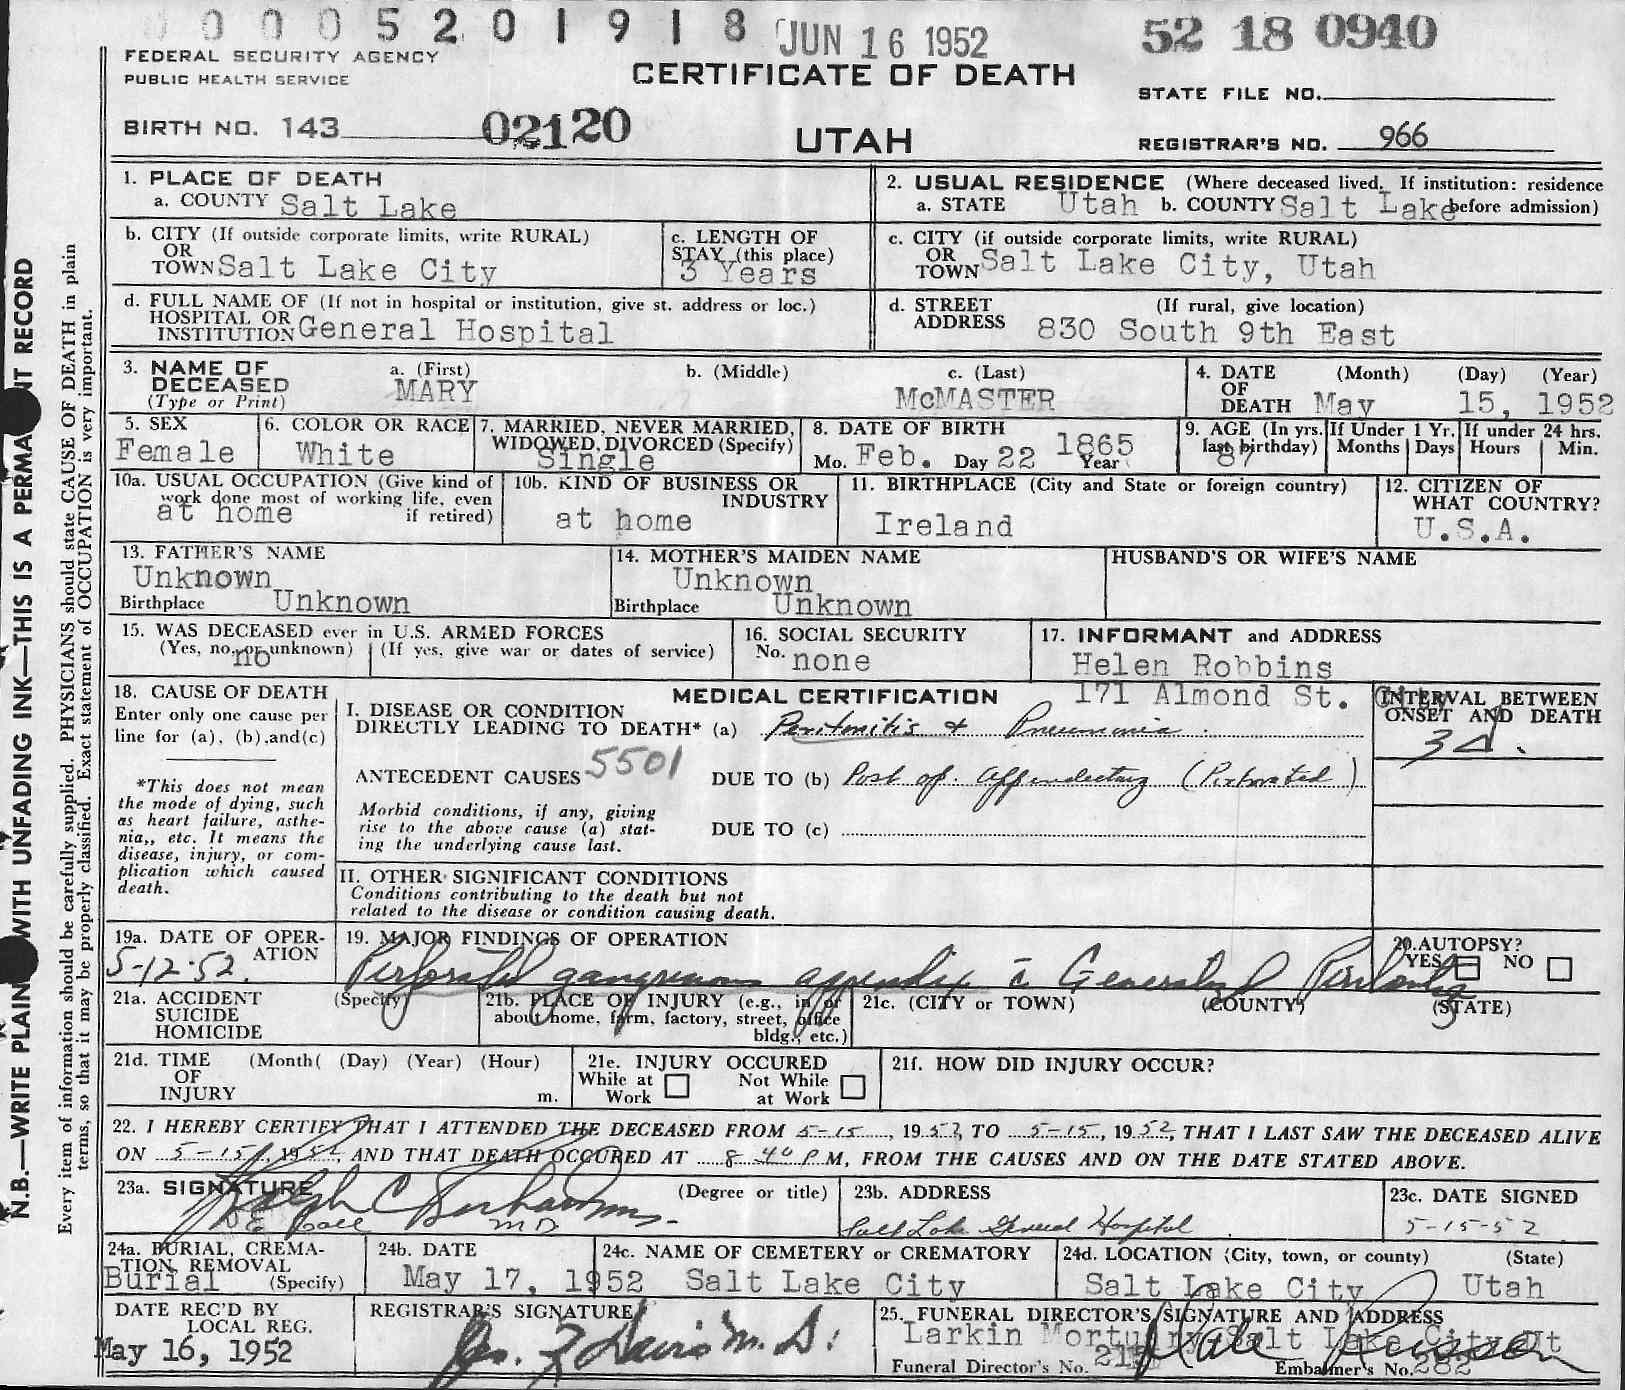 0 0 0 5 2 0 1 9 1 8 JUN 16 1952 52 18 0940
FEDERAL SECURITY AGENCY
PUBLIC HEALTH SERVICE
CERTIFICATE OF DEATH
STATE FILE NO.
BIRTH NO. 143 02120
UTAH
REGISTRAR'S NO. 966
1. PLACE OF DEATH
a. COUNTY Salt Lake
2. USUAL RESIDENCE (Where deceased lived. If institution: residence before admission)
a. STATE Utah b. COUNTY Salt Lake
b. CITY (If outside corporate limits, write RURAL)
OR
TOWN Salt Lake City
c. LENGTH OF
STAY (this place)
3 Years
c. CITY (if outside corporate limits, write RURAL)
OR
TOWN Salt Lake City, Utah
d. FULL NAME OF (If not in hospital or institution, give st. address or loc.)
HOSPITAL OR
INSTITUTION General Hospital
d. STREET (If rural, give location)
ADDRESS 830 South 9th East
3. NAME OF
DECEASED
(Type or Print)
a. (First)
MARY
b. (Middle)
c. (Last)
McMASTER
4. DATE (Month) (Day) (Year)
OF
DEATH May 15, 1952
5. SEX
Female
6. COLOR OR RACE
White
7. MARRIED, NEVER MARRIED,
WIDOWED, DIVORCED (Specify)
Single
8. DATE OF BIRTH
Mo. Feb. Day 22 1865 Year
9. AGE (In yrs.
last birthday)
87
If Under 1 Yr.
Months Days
If under 24 hrs.
Hours Min.
10a. USUAL OCCUPATION (Give kind of
work done most of working life, even
if retired)
at home
10b. KIND OF BUSINESS OR
INDUSTRY
at home
11. BIRTHPLACE (City and State or foreign country)
Ireland
12. CITIZEN OF
WHAT COUNTRY?
U.S.A.
13. FATHER'S NAME
Unknown
Birthplace Unknown
14. MOTHER'S MAIDEN NAME
Unknown
Birthplace Unknown
HUSBAND'S OR WIFE'S NAME
15. WAS DECEASED ever in U.S. ARMED FORCES
(Yes, no, or unknown) (If yes, give war or dates of service)
no
16. SOCIAL SECURITY
No. none
17. INFORMANT and ADDRESS
Helen Robbins
171 Almond St. City
18. CAUSE OF DEATH
Enter only one cause per
line for (a), (b), and (c)
*This does not mean
the mode of dying, such
as heart failure, asthe-
nia,, etc. It means the
disease, injury, or com-
plication which caused
death.
MEDICAL CERTIFICATION
I. DISEASE OR CONDITION
DIRECTLY LEADING TO DEATH* (a) Peritonitis & Pneumonia
INTERVAL BETWEEN
ONSET AND DEATH
3d.
ANTECEDENT CAUSES 5501 DUE TO (b) Post op. Appendectomy (Perforated)
Morbid conditions, if any, giving
rise to the above cause (a) stat-
ing the underlying cause last.
DUE TO (c)
II. OTHER SIGNIFICANT CONDITIONS
Conditions contributing to the death but not
related to the disease or condition causing death.
19a. DATE OF OPER-
ATION
5-12-52
19. MAJOR FINDINGS OF OPERATION
Perforated gangrenous appendix c Generalized Peritonitis
20. AUTOPSY?
YES NO
21a. ACCIDENT (Specify)
SUICIDE
HOMICIDE
21b. PLACE OF INJURY (e.g., in or
about home, farm, factory, street, office
bldg., etc.)
21c. (CITY or TOWN) (COUNTY) (STATE)
21d. TIME (Month) (Day) (Year) (Hour)
OF
INJURY m.
21e. INJURY OCCURED
While at Work Not While at Work
21f. HOW DID INJURY OCCUR?
22. I HEREBY CERTIFY THAT I ATTENDED THE DECEASED FROM 5-15, 1952, TO 5-15, 1952, THAT I LAST SAW THE DECEASED ALIVE
ON 5-15, 1952, AND THAT DEATH OCCURED AT 8 40 P M, FROM THE CAUSES AND ON THE DATE STATED ABOVE.
23a. SIGNATURE (Degree or title)
Ralph C
MD
23b. ADDRESS
Salt Lake General Hospital
23c. DATE SIGNED
5-15-52
24a. BURIAL, CREMA-
TION REMOVAL
Burial (Specify)
24b. DATE
May 17, 1952
24c. NAME OF CEMETERY or CREMATORY
Salt Lake City
24d. LOCATION (City, town, or county) (State)
Salt Lake City Utah
DATE REC'D BY
LOCAL REG.
May 16, 1952
REGISTRAR'S SIGNATURE
Davis M.D.
25. FUNERAL DIRECTOR'S SIGNATURE AND ADDRESS
Larkin Mortuary Salt Lake City Ut
Funeral Director's No. Embalmer's No. 282
N.B.—WRITE PLAIN WITH UNFADING INK—THIS IS A PERMA NT RECORD
Every item of information should be carefully supplied. PHYSICIANS should state CAUSE OF DEATH in plain
terms, so that it may be properly classified. Exact statement of OCCUPATION is very important.